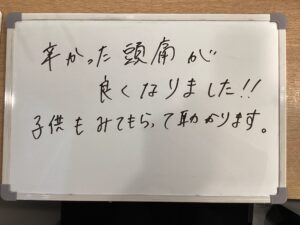 辛かった頭痛が
良くなりました!!
子供もみてもらって助かります。